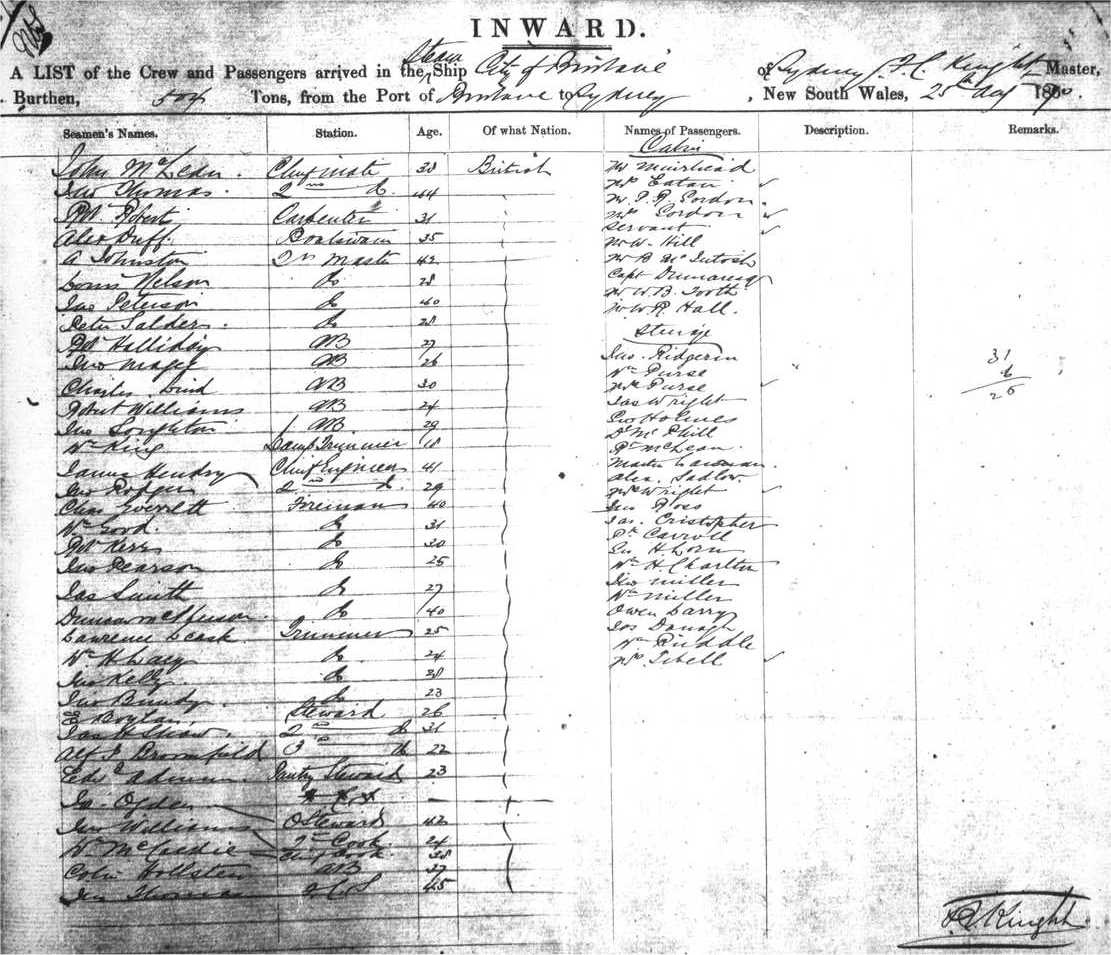 INWARD.
A LIST of the Crew and Passengers arrived in the Steam Ship City of Brisbane of Sydney F. C. Knight Master,
Burthen, 504 Tons, from the Port of Brisbane to Sydney, New South Wales, 25th Aug
Seamen's Names. Station. Age. Of what Nation. Names of Passengers. Description. Remarks.
Cabin
John McLean. Chief mate 38 British Mr Muirhead
Jno Thomas. 2nd Do. 44 Mrs Eatain ✓
Robt Carpenter 31 Mr P. R. Gordon.
Mrs Gordon ✓
Servant ✓
Alex Duff. Boatswain 35 Mr W. Hill
A Johnston Qr Master 42 Mr B McIntosh
Louis Nelson Do 28 Capt Dumaresq
Jno Peterson Do 40 Mr W. B. Tooth
Peter Salder Do 28 Mr W. R. Hall.
Steerage
Robt Halliday AB 27 Jno. Ridgerin
Jno Magee AB 26 Wm Purse
Charles AB 30 Mrs Purse ✓
Robert Williams AB 24 Jas Wright
Jno AB. 29 Geo Holmes
Wm King Lamp Trimmer 18 D McPhill
James Hendry Chief Engineer 41 McLean
Jno Rodger 2nd Do. 29 Master
Alex. Sadlow.
Chas Everett Fireman 40 Mrs Wright ✓
Wm Good. Do 31 Jno
Robt Kerr Do 30 Jas. Cristopher
Jno Pearson Do 25 Carroll
Jas Smith Do 27 Wm H. Charlton
Duncan McPherson. Do 40 Jno Miller
Lawrence Leask Trimmer 25 Wm Miller
Wm H Do 24 Owen Barry
Jno Kelly. Do 28 Jos Danagh
Jno Bundy. Do 23 Wm Riddle
Mrs Tibell ✓
E Boylan. Steward 26
Jas H Shaw. 2nd Do 31
Alf J Broomfield 3 Do 22
Edwd Pantry Steward 23
Ogden
Jno Williams Steward 42
Wm McCredie 2nd Cook 24
Chief Cook 38
Colin Hollsten AB 37
Jno Thomas 45
31
6
25
F. C. Knight